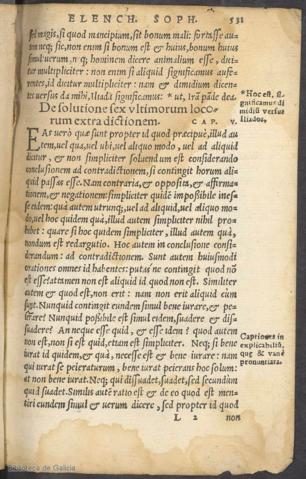 ELENCH. SOPH. 531
sed magis, si quod mancipium, sit bonum mali: fortasse au-
tem neq; sic, non enim si bonum est & huius, bonum huius
simul uerum, n q; hominem dicere animalium esse, dici-
tur multipliciter: non enim si aliquid significamus aufe-
rentes, id dicitur multipliciter: nam & dimidium dicen-
tes uersus da mihi, Iliada significamus:
*Hoc est, si-
gnificamus di
midiũ versus
Iliados.
De solutione sex vltimorum loco-
rum extra dictionem. CAP. V.
EAs uerò quæ sunt propter id quod præcipuè, illud au
tem, uel qua, uel ubi, uel aliquo modo, uel ad aliquid
dicitur, & non simpliciter soluendum est considerando
conclusionem ad contradictionem, si contingit horum ali-
quid passas esse. Nam contraria, & opposita, & affirma-
tionem, & negationem: simpliciter quidẽ impossibile inesse
se eidem: quà autem utrunq;, uel ad aliquid, uel aliquo mo-
do, uel hoc quidem quà, illud autem simpliciter nihil pro-
hibet: quare si hoc quidem simpliciter, illud autem quà,
nondum est redargutio. Hoc autem in conclusione consi-
derandum: ad contradictionem. Sunt autem huiusmodi
orationes omnes id habentes: putas ne contingit quod nõ
est esse: at tamen non est aliquid id quod non est. Similiter
autem & quod est, non erit: nam non erit aliquid eũm
sup. Nunquid contingit eundem simul bene iurare, & pe-
ierare? Nunquid possibile est simul eidem, suadere & dis-
suadere? An neque esse quid, & esse idem? quod autem
non est, non si est quid, etiam est simpliciter. Neq; si bene
iurat id quidem, & quà, necesse est & bene iurare: nam
qui iurat se peieraturum, bene iurat peierans hoc solum:
at non bene iurat. Neq; qui dissuadet, suadet, sed secundum
quid suadet. Similis autẽ ratio est & de eo quod est men-
tiri eundem simul & uerum dicere, sed propter id quod
Captiones in
explicabiliũ,
quę & vanè
pronuntiata.
L 2 non
Biblioteca de Galicia